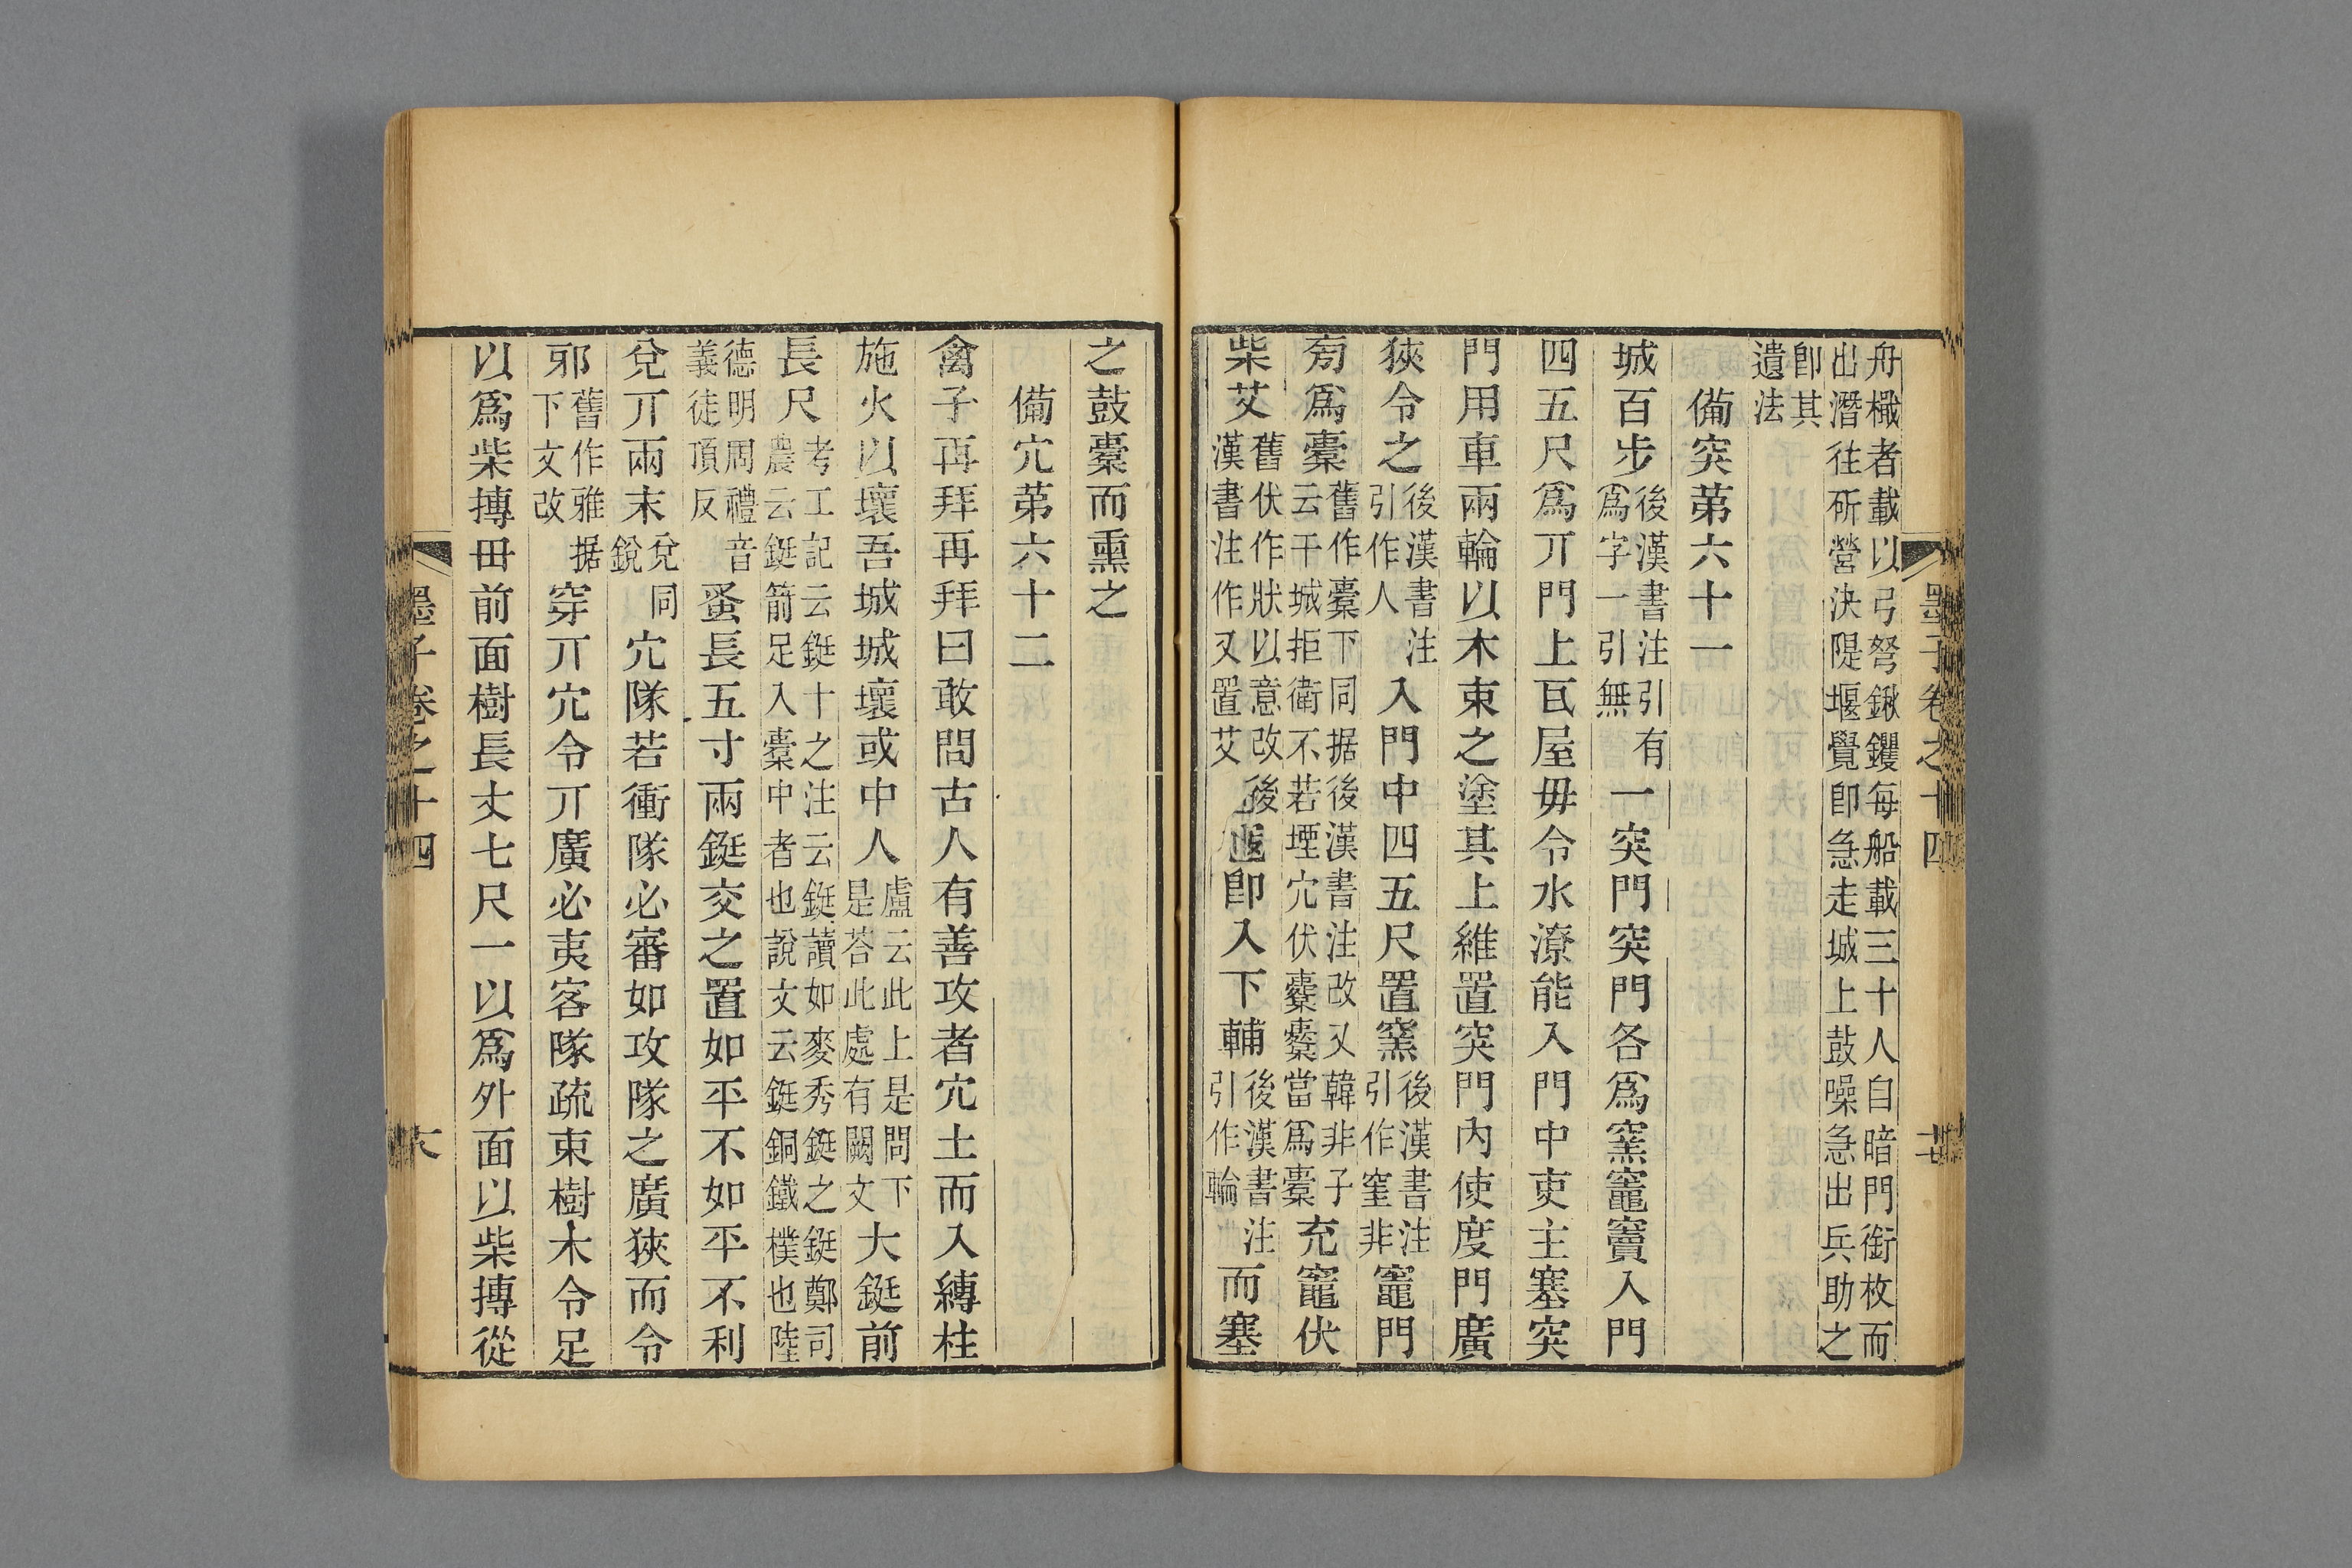 墨子卷之十四
舟檝者載以弓弩鍬钁每船載三十人自暗門銜枚而
出潛往斫營決隄堰覺卽急走城上鼓噪急出兵助之
卽其
遺法
備突第六十一
城百步後漢書注引有爲字一引無一突門突門各爲窯竈竇入門
四五尺爲丌門上瓦屋毋令水潦能入門中吏主塞突
門用車兩輪以木束之塗其上維置突門內使度門廣
狹令之後漢書注引作人入門中四五尺置窯後漢書注引作窒非竈門
旁爲橐舊作橐下同据後漢書注改又韓非子云干城拒衛不若堙穴伏櫜櫜當爲橐充竈伏
柴艾舊伏作狀以意改後漢書注作又置艾卽入下輔後漢書注引作輪而塞
之鼓橐而熏之
備穴第六十二
禽子再拜再拜曰敢問古人有善攻者穴土而入縛柱
施火以壞吾城城壞或中人盧云此上是問下是荅此處有闕文大鋌前
長尺考工記云鋌十之注云鋌讀如麥秀鋌之鋌鄭司農云鋌箭足入橐中者也說文云鋌銅鐵樸也陸
德明周禮音義徒頂反蚤長五寸兩鋌交之置如平不如平不利
兌丌兩末兌同銳穴隊若衝隊必審如攻隊之廣狹而令
邪舊作雅据下文改穿丌穴令丌廣必夷客隊疏束樹木令足
以爲柴摶毌前面樹長丈七尺一以爲外面以柴摶從
墨子卷之十四